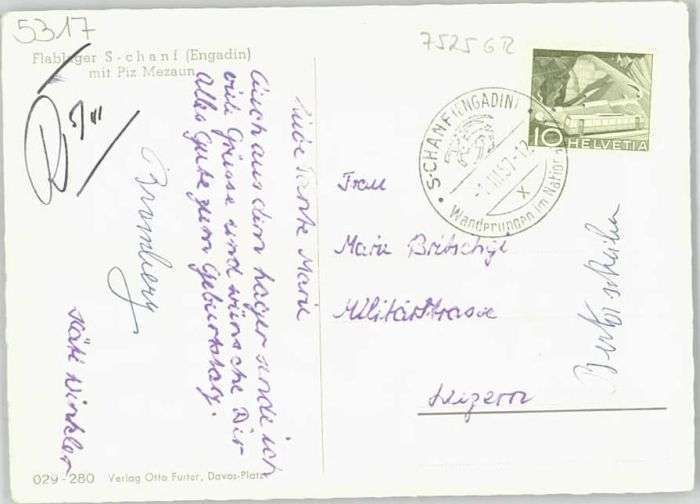 5317
Flablager S-chanf (Engadin)
mit Piz Mezaun
7525 GR
Liebe Tante Marie
Auch aus dem Lager sende ich
viele Grüsse und wünsche Dir
Alles Gute zum Geburtstag.
Käti Winkler
Bromberg
S-CHANF (ENGADIN)
Wanderungen im Nationa
10 HELVETIA
Frau
Marie Britschgi
Militärstrasse
Luzern
029-280 Verlag Otto Furter, Davos-Platz